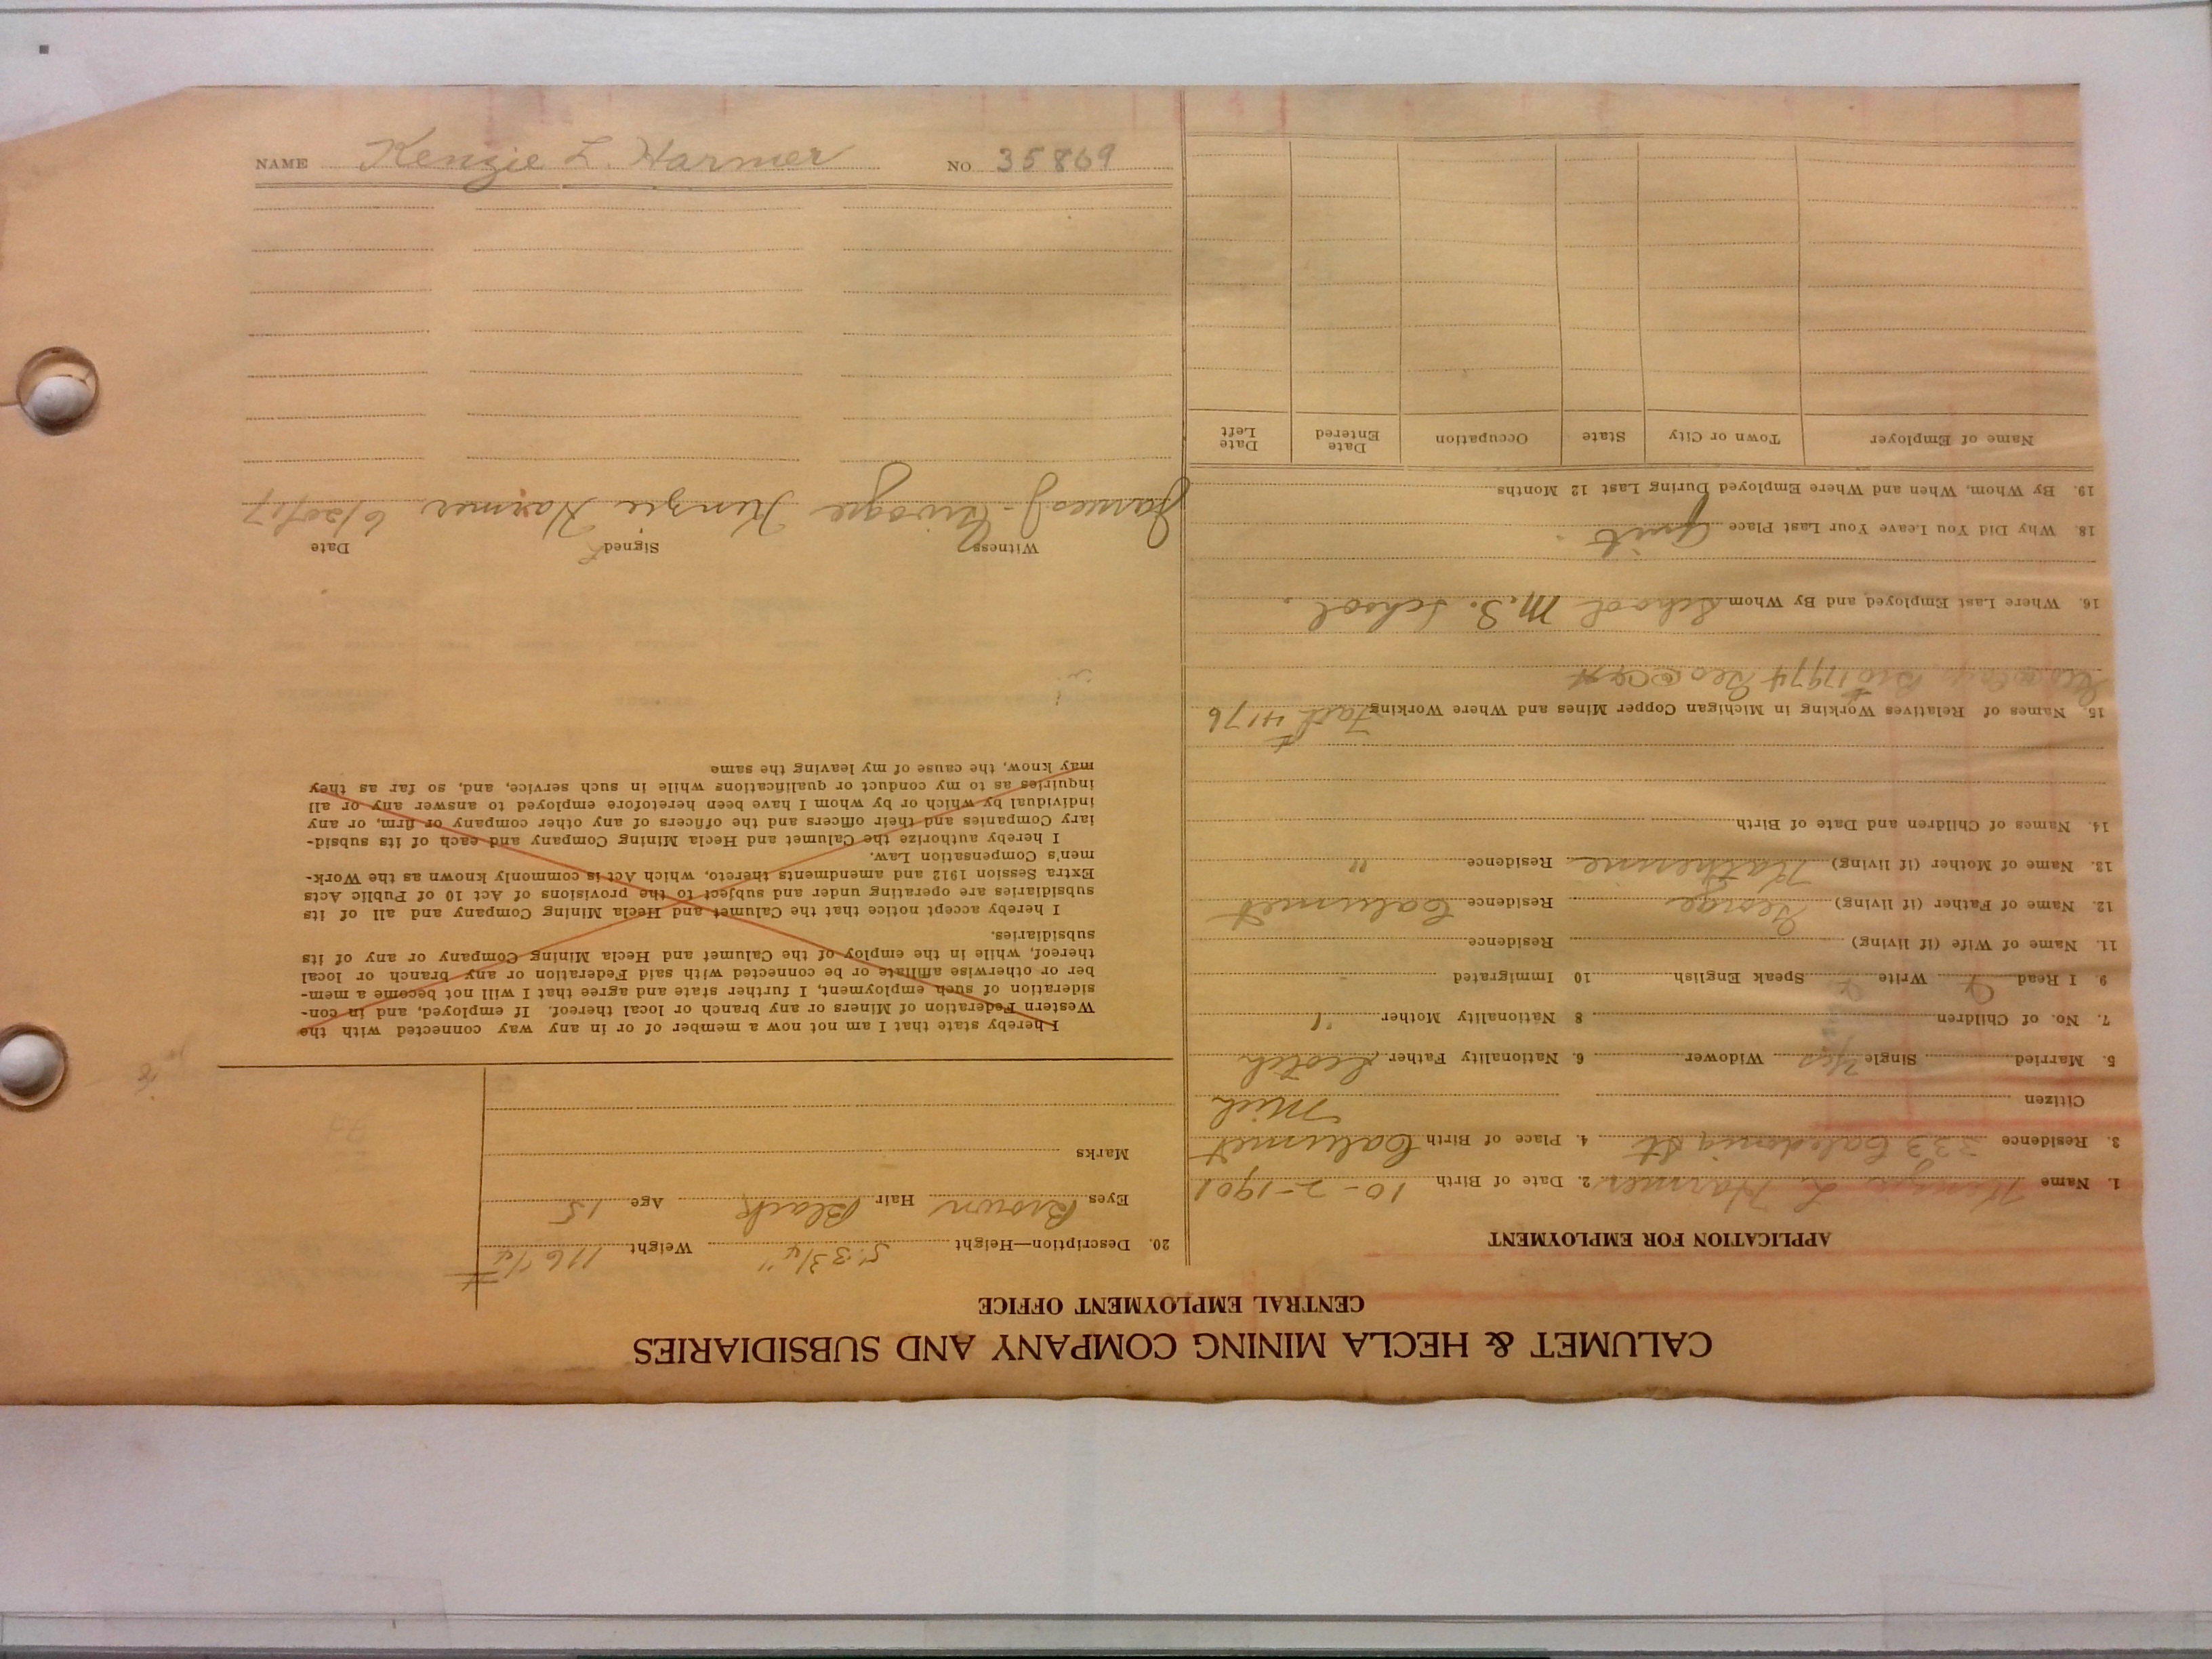 NAME Kenzie L. Harmer NO. 35869
CALUMET & HECLA MINING COMPANY AND SUBSIDIARIES
CENTRAL EMPLOYMENT OFFICE
APPLICATION FOR EMPLOYMENT
1. Name Kenzie L. Harmer 2. Date of Birth 10-2-1901
3. Residence 333 Caledonia St 4. Place of Birth Calumet
Citizen Mich
5. Married Single Yes Widower 6. Nationality Father Scotch
7. No. of Children 8 Nationality Mother "
9. I Read Write Speak English 10 Immigrated
11. Name of Wife (if living) Residence
12. Name of Father (if living) George Residence Calumet
13. Name of Mother (if living) Katherine Residence "
14. Names of Children and Date of Birth
15. Names of Relatives Working in Michigan Copper Mines and Where Working Fath 4176
Bro 17974
16. Where Last Employed and By Whom School M.S. School.
18. Why Did You Leave Your Last Place Quit.
19. By Whom, When and Where Employed During Last 12 Months
Name of Employer Town or City State Occupation Date Entered Date Left
20. Description—Height 5' 3 3/4" Weight 116 1/4 #
Eyes Brown Hair Black Age 15
Marks
I hereby state that I am not now a member of or in any way connected with the
Western Federation of Miners or any branch or local thereof. If employed, and in con-
sideration of such employment, I further state and agree that I will not become a mem-
ber or otherwise affiliate or be connected with said Federation or any branch or local
thereof, while in the employ of the Calumet and Hecla Mining Company or any of its
subsidiaries.
I hereby accept notice that the Calumet and Hecla Mining Company and all of its
subsidiaries are operating under and subject to the provisions of Act 10 of Public Acts
Extra Session 1912 and amendments thereto, which Act is commonly known as the Work-
men's Compensation Law.
I hereby authorize the Calumet and Hecla Mining Company and each of its subsid-
iary Companies and their officers and the officers of any other company or firm, or any
individual by which or by whom I have been heretofore employed to answer any or all
inquiries as to my conduct or qualifications while in such service, and, so far as they
may know, the cause of my leaving the same
Witness Signed Date
James J. Kenzie Harmer 6/20/17